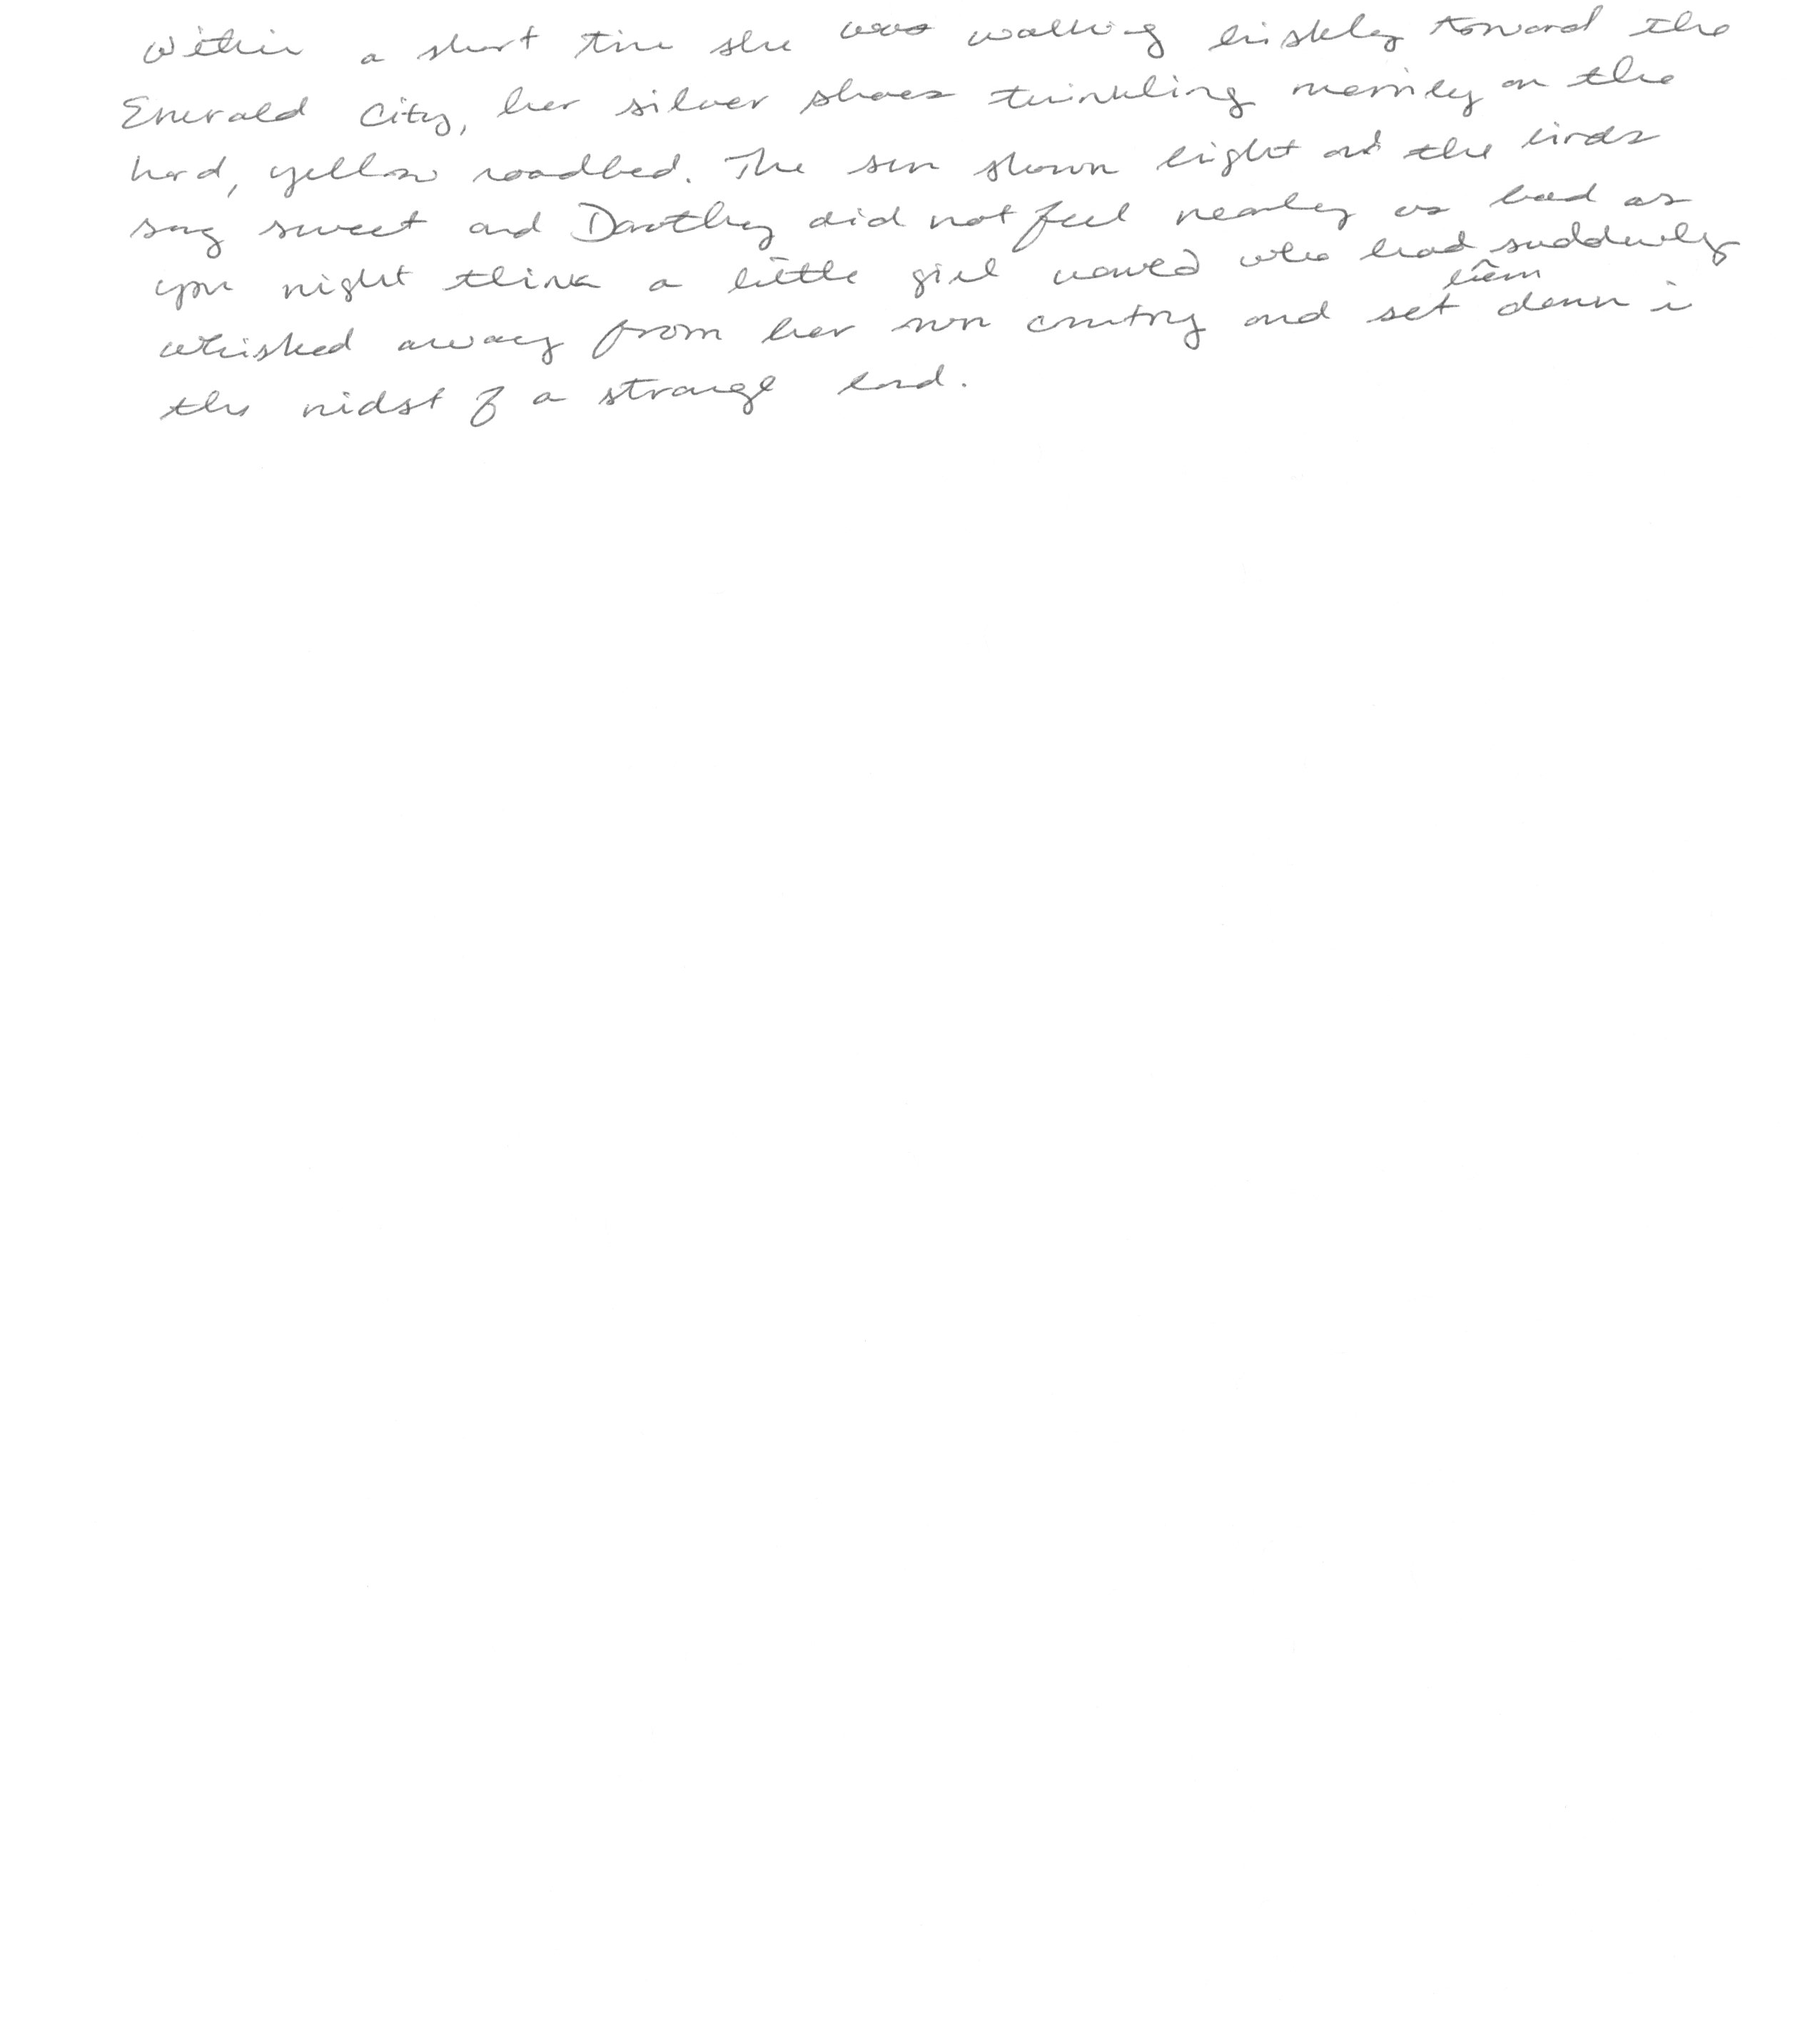 Within a short time she was walking briskly toward the
Emerald City, her silver shoes twinkling merrily on the
hard, yellow roadbed. The sun shown bright and the birds
sang sweet and Dorothy did not feel nearly as bad as
you might think a little girl would who had suddenly
been
whisked away from her own country and set down in
the midst of a strange land.